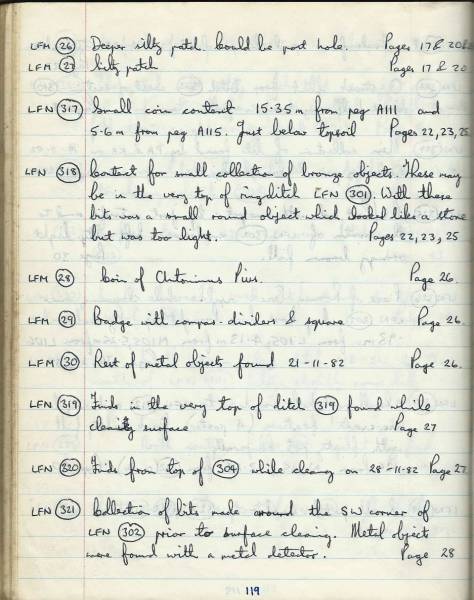 LFM (26) Deeper silty patch. Could be post hole. Pages 17 & 20
LFM (27) Silty patch Pages 17 & 20
LFN (317) Small coin context 15.35m from peg A111 and
5.6m from peg A115. Just below topsoil Pages 22, 23, 25
LFN (318) Context for small collection of bronze objects. These may
be in the very top of ringditch LFN (301). With these
bits was a small round object which looked like a stone
but was too light. Pages 22, 23, 25
LFM (28) Coin of Antoninus Pius. Page 26.
LFM (29) Badge with compas-dividers & square Page 26.
LFM (30) Rest of metal objects found 21-11-82 Page 26.
LFN (319) Finds in the very top of ditch (319) found while
cleaning surface Page 27
LFN (320) Finds from top of (304) while cleaning on 28-11-82 Page 27
LFN (321) Collection of bits made around the SW corner of
LFN (302) prior to surface cleaning. Metal object
were found with a metal detector. Page 28
119